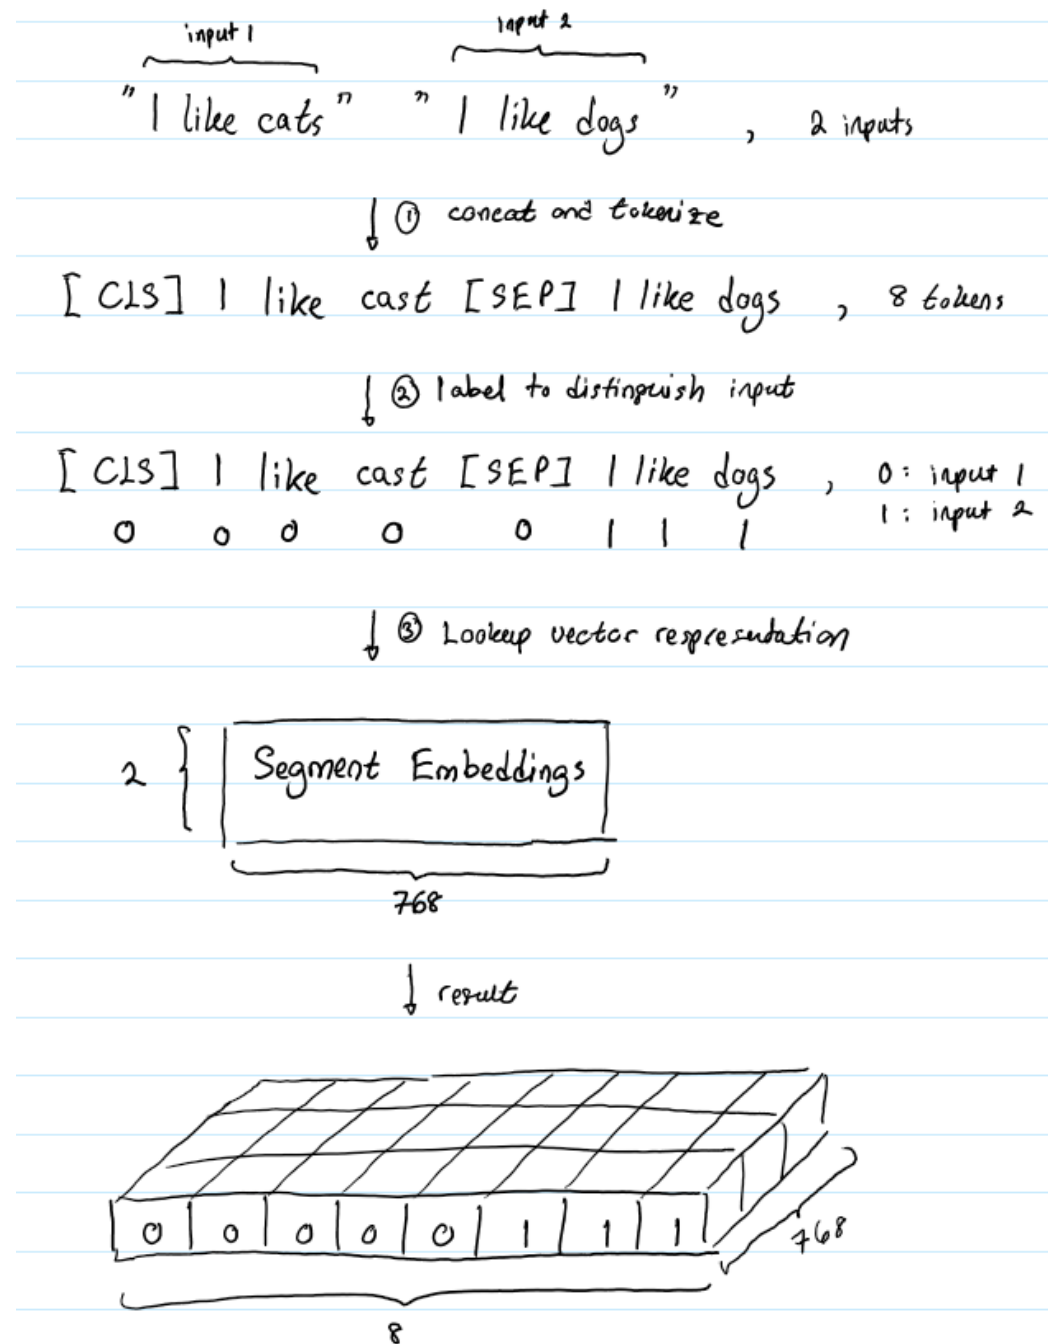 input 1 input 2
"I like cats" "I like dogs" , 2 inputs
① concat and tokenize
[CLS] I like cast [SEP] I like dogs , 8 tokens
② label to distinguish input
[CLS] I like cast [SEP] I like dogs , 0 : input 1
0 0 0 0 0 1 1 1 1 : input 2
③ Lookup vector respresentation
2 Segment Embeddings
768
result
0 0 0 0 0 1 1 1
768
8